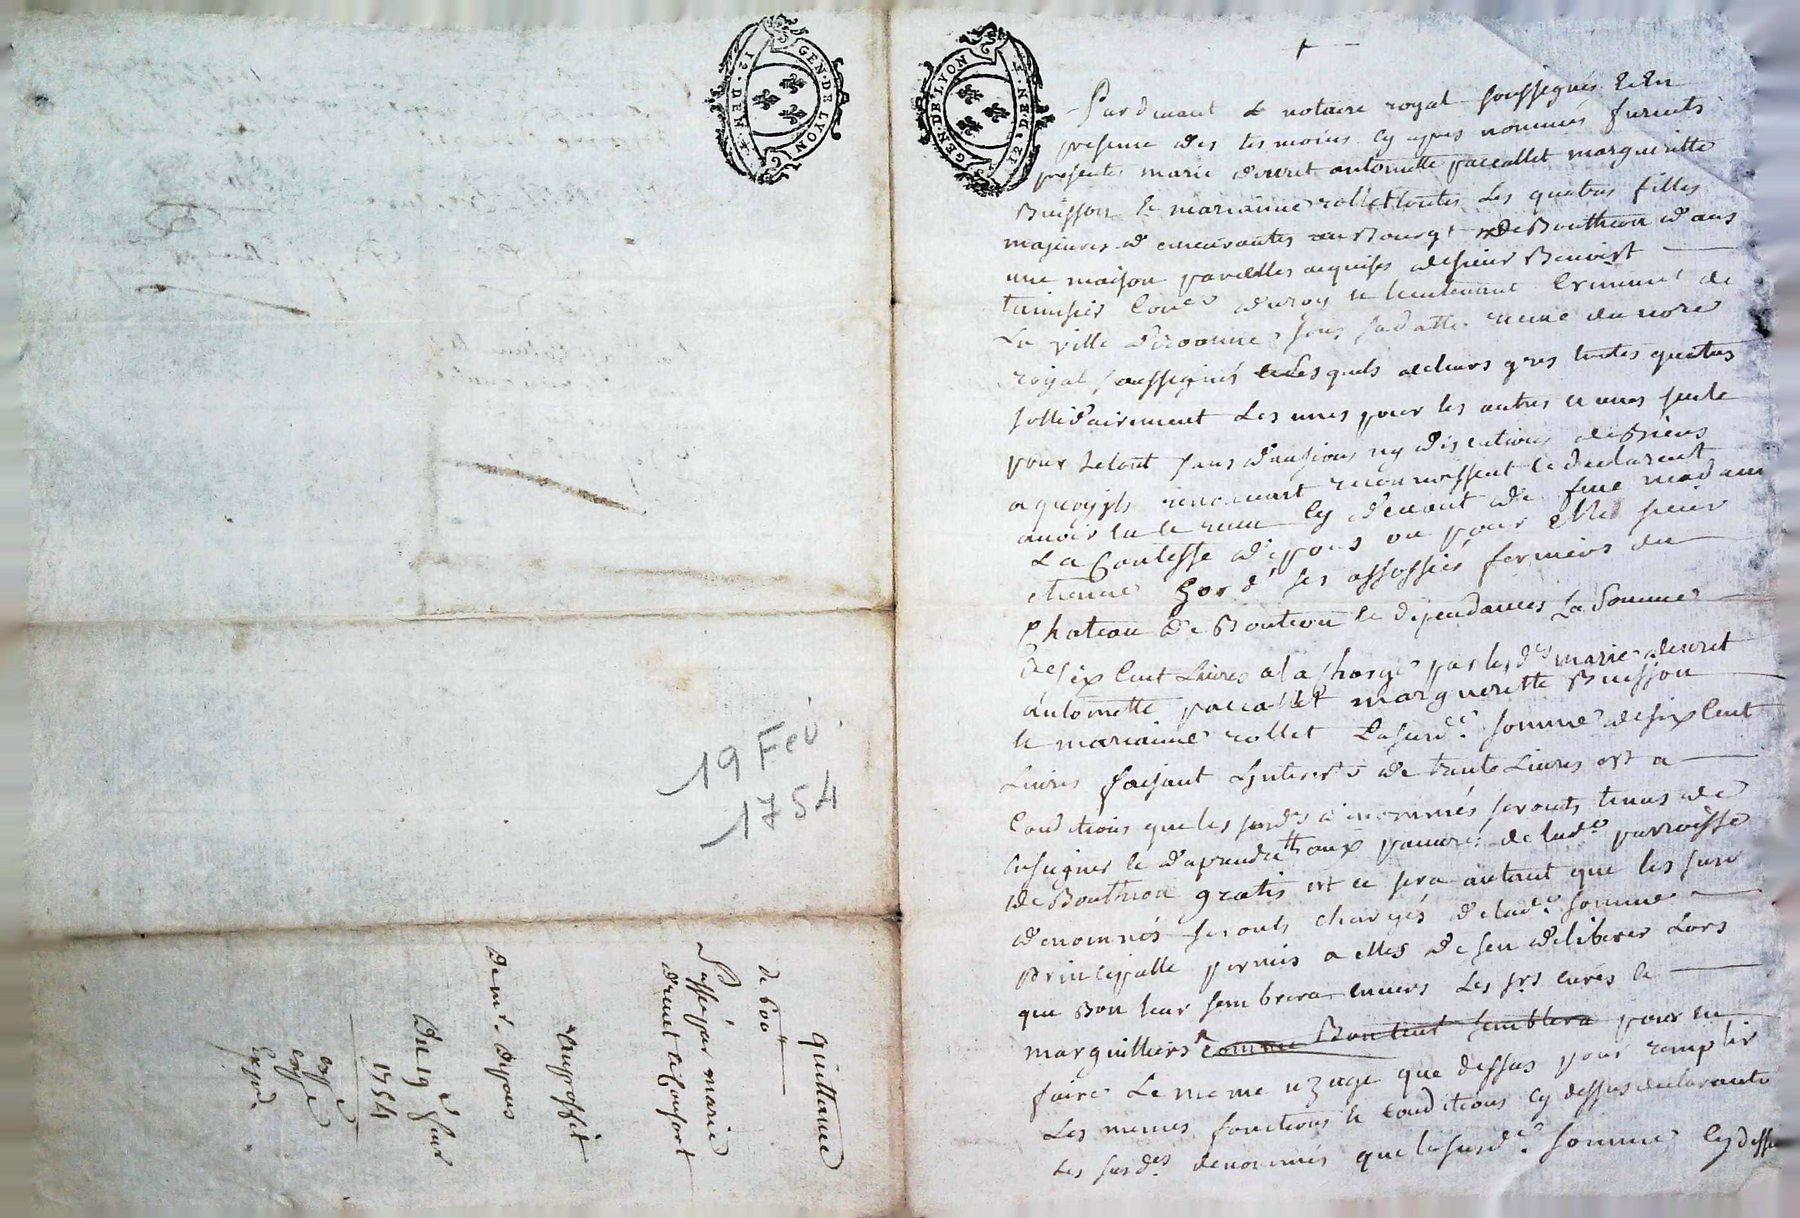 GEN·DE·LYON
12·DEN·4·
GEN·DE·LYON
4·NED·12
Pardevant le notaire royal soussignés Et En
presence des tesmoins cy apres nommés furents
presentes marie devret antoinette paccallet margueritte
Buisson & marianne rollet toutes Les quatres filles
majeures demeurantes au Bourg de Bouthéon dans
une maison par elles acquises de sieur Benoist
Conr du roy & lieutenant Criminel de
La ville sous sadatte receue du nore
royal soussignés Lesquels de leurs grés toutes quatres
sollidairement Les unes pour les autres et une seule
pour Letout sans division ny discutions de Biens
a quoy ils renoncent reconnoissent & declarent
avoir eu & receu Cy devant de feue madame
La Contesse d'epons ou pour Elles sieur
etienne & ses assossiés fermiers du
Château de Bouteon & dependances La Somme
de six Cent Livres a la charge par les des marie devret
antoinette paccallet marguerette Buisson
& marianne rollet Lasusde somme de six Cent
Livres faisant Interest de trente Livres est a
Conditions que les susds denommés seronts tenus de
enseigner & d'aprendre aux pauvres de lade parroisse
de Bouthéon gratis et ce sera autant que les sus
denommés seronts chargés de lade somme
Principalle permis a elles de s'en deliberer Lors
que Bon leur semblera envers Les srs curés &
marguilliers comme Bon leur semblera pour en
faire Le meme uzage que dessus pour remplir
Les memes fonctions & conditions cy dessus declarants
Les susdes denommés que lasusde somme Cy dessus
19 Fev.
1754
quittance
de 600 ll
Passé par marie
devret & Consort
Au proffit
De me Depons
Du 19e fevr
1754
Expd.